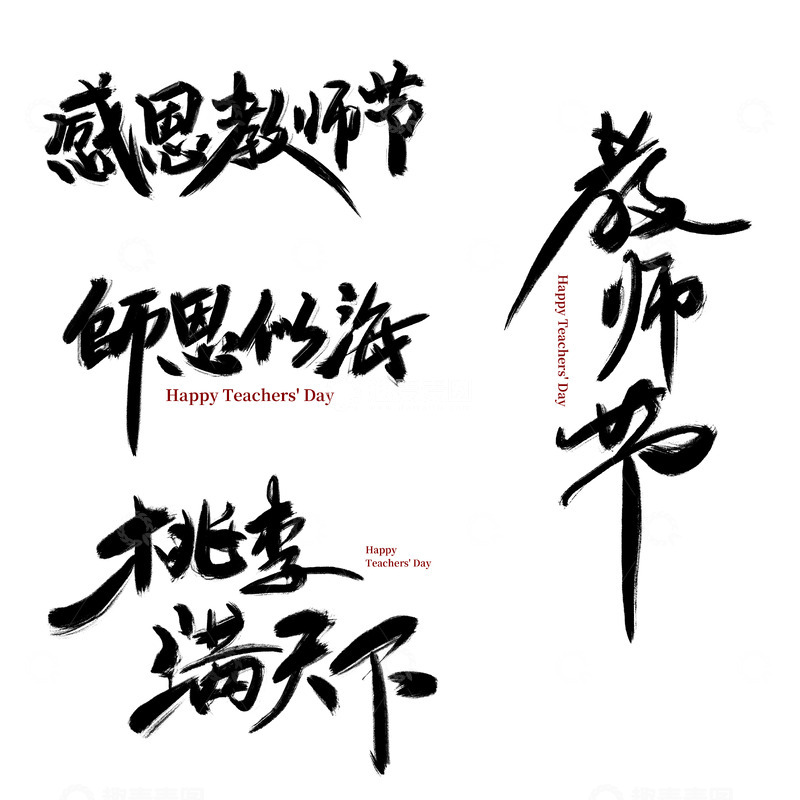 感恩教师节
師恩似海
Happy Teachers' Day
桃李
Happy
Teachers' Day
满天下
教师节
Happy Teachers' Day